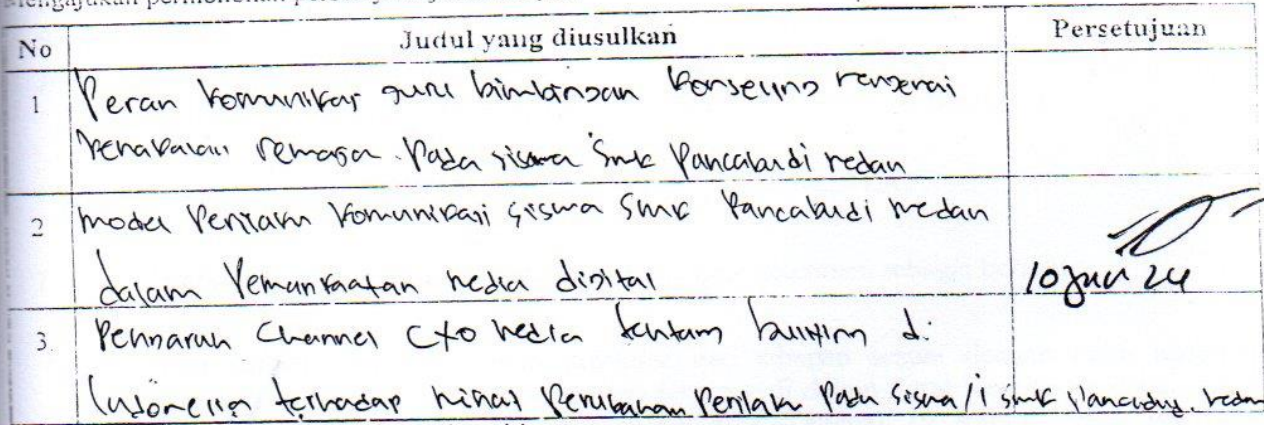 Mengajukan permohonan
No Judul yang diusulkan Persetujuan
1 Peran Komunikasi guru bimbingan Konseling mengenai
kenakalan remaja. Pada siswa Smk Pancabudi medan
2 model Perilaku Komunikasi siswa Smk Pancabudi medan
dalam Pemanfaatan media digital 10 Jun 24
3. Pengaruh Channel media tentang bullying di
Indonesia terhadap minat Perubahan Perilaku Pada siswa/i smk Pancabudi. medan